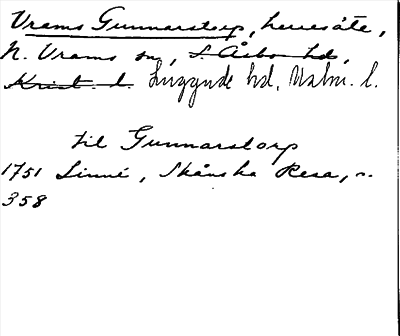 Vrams Gunnarstorp, herresäte,
N. Vrams sn, S. Åsbo hd,
Krist. l. Luggude hd, Malm. l.
til Gunnarstorp
1751 Linné, Skånska Resa, s.
358